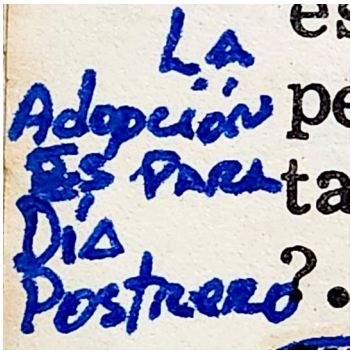 LA
Adopción
Es PARA
DíA
Postrero
es
pe
ta
?.